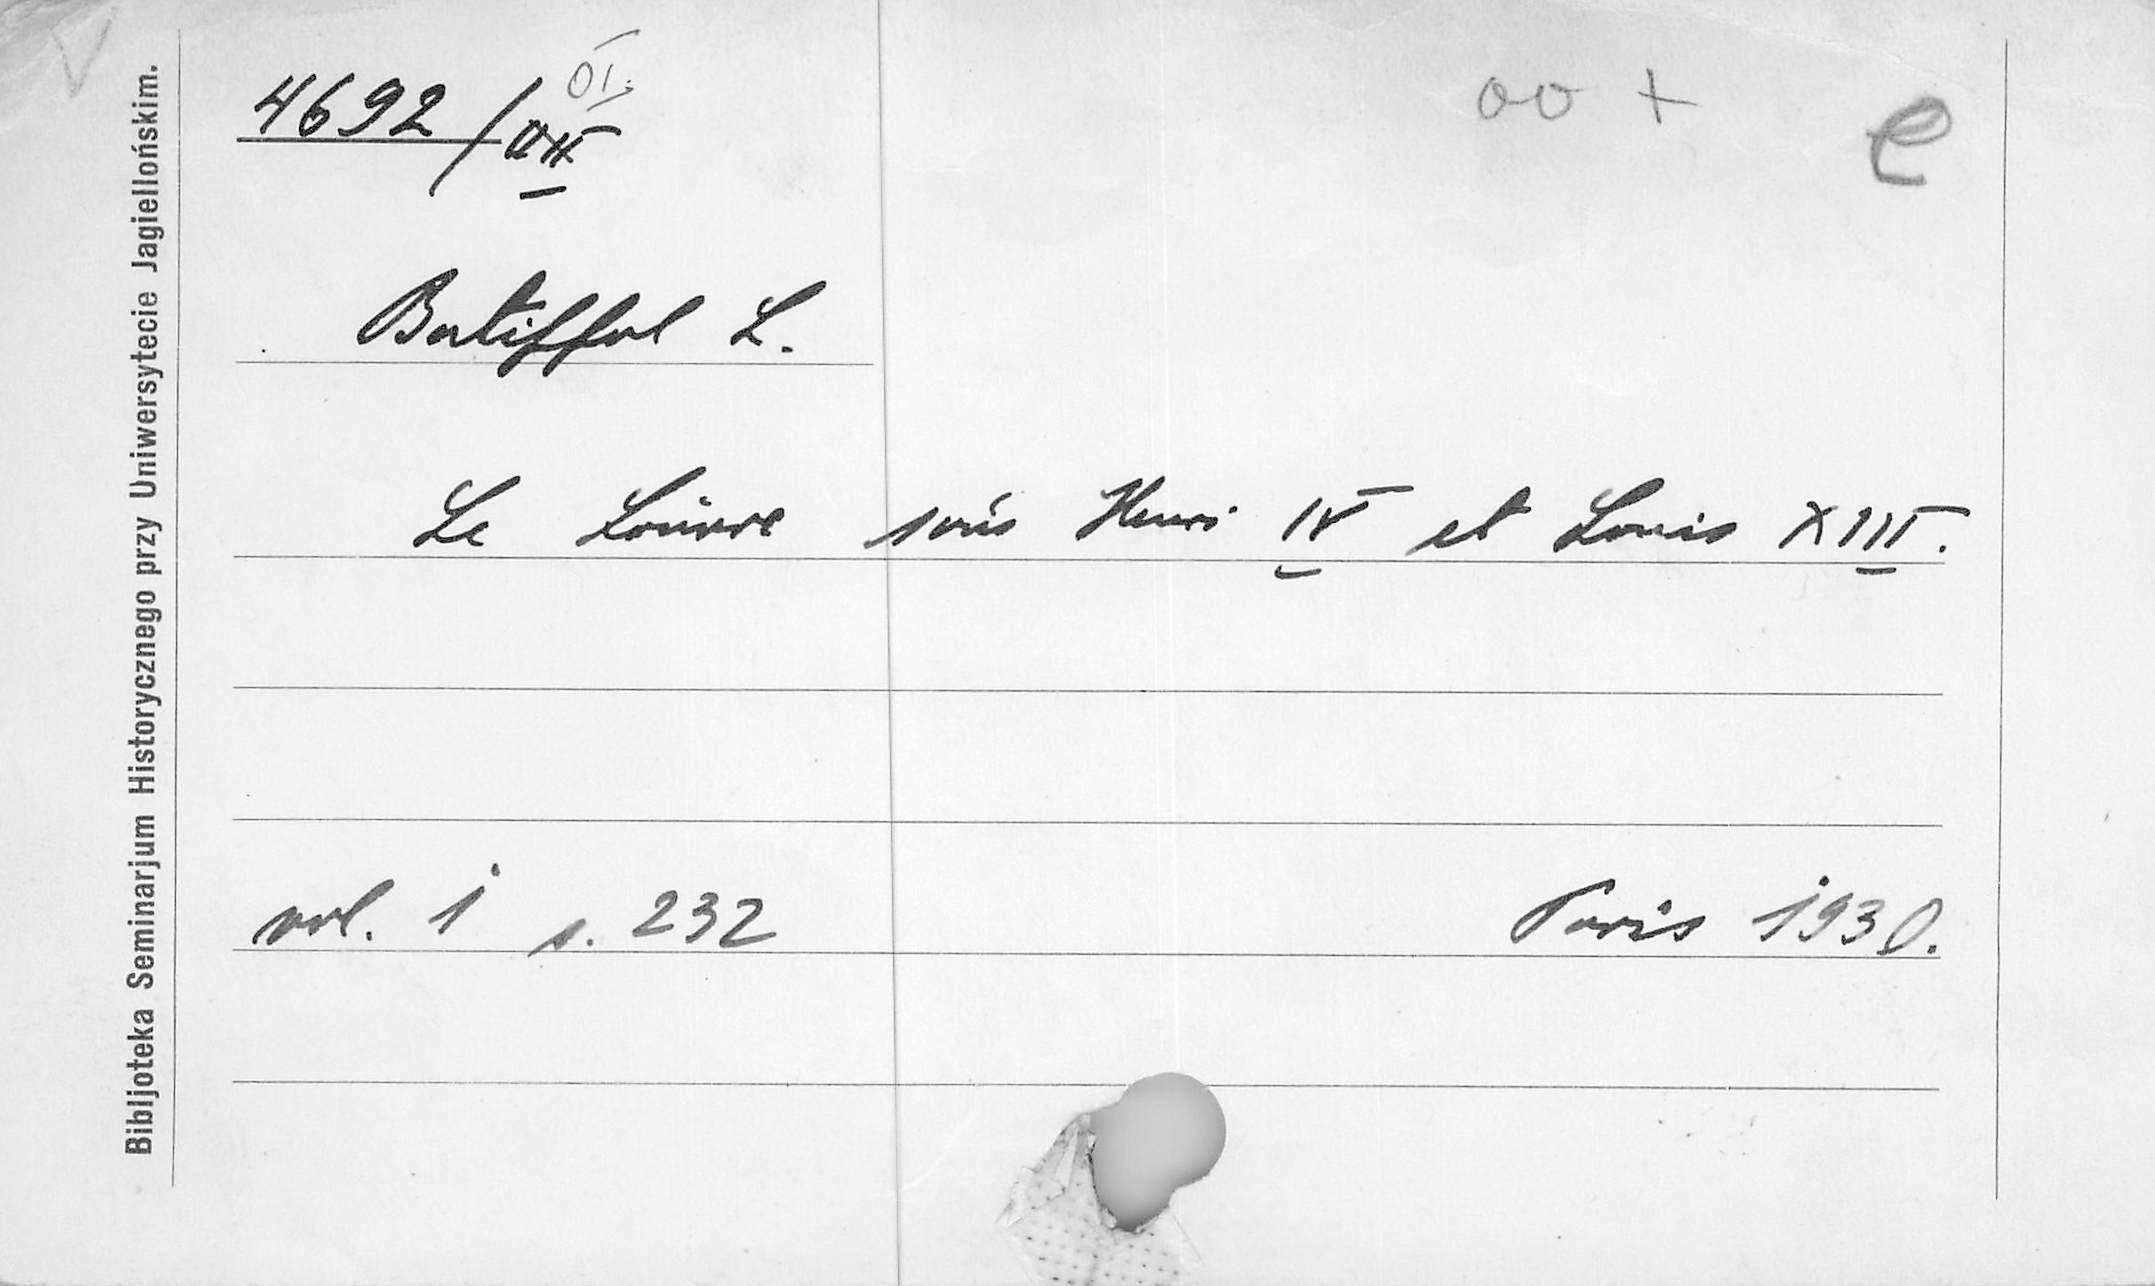 Bibljoteka Seminarjum Historycznego przy Uniwersytecie Jagiellońskim.
4692 /
Batiffol L.
Le Louvre sous Henri IV et Louis XIII.
vol. 1 s. 232
Paris 1930.